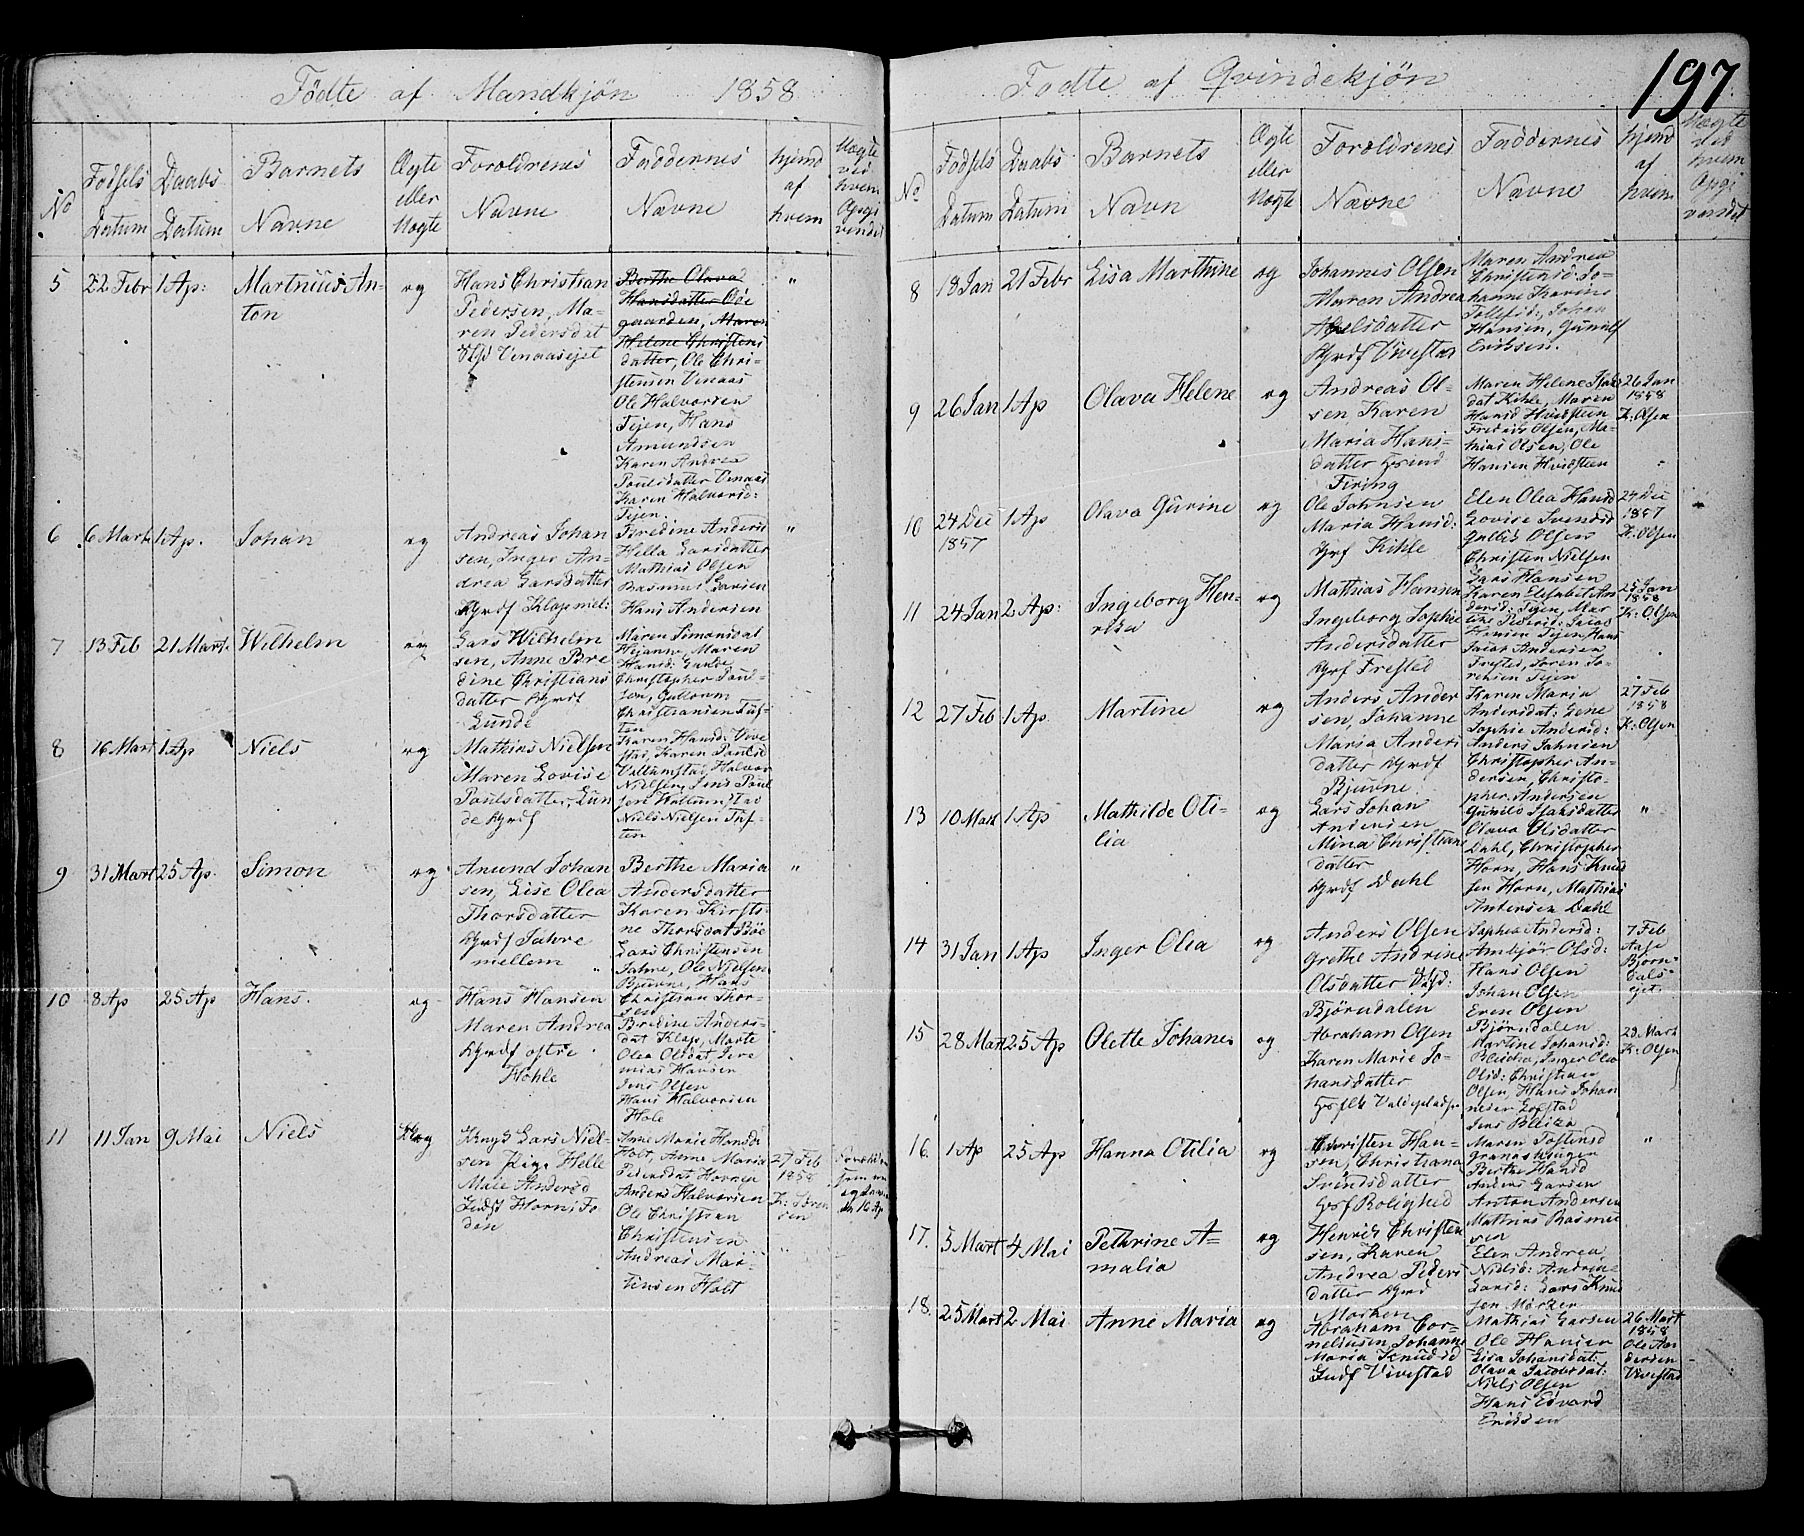 Fødte af Mandkjøn 1858
No
Fødsels Datum
Daabs Datum
Barnets Navne
Ægte eller Uægte
Forældrenes Navne
Faddernes Navne
hjemd af hvem
Uægte ved hvem
5 22 Febr 1 Ap: Martnius An-
ton
og
Hans Christian
Pedersen, Ma-
ren Pedersdat
Vinaasejet
Berthe Olava
Hansdatter
gaarden, Maren
Helene Christens
datter, Ole Chri-
stensen Vinaas
Ole Halvorsen
Tejen, Hans
Amundsen
Karen Andrea
Poulsdatter Vinaas
Karen Halvorsd:
Tejen.
"
6 6 Marts 1 Ap. Johan
og
Andreas Johan
sen, Inger An-
drea Larsdatter
Gyrdf
Andersd
Hella Larsdatter
Mathias Olsen
Rasmus Larsen
Hans Andersen
"
7 13 Feb 21 Mart. Wilhelm
og
Lars Wilhelm
sen, Anne Bre
dine Christians
datter Gyrdf
Lunde
Maren Simonsdat
Maren
Hansd: Lunde
Christopher Poul-
sen,
Christiansen Tuf-
ten
8 16 Mart 1 Ap Niels
og
Mathias Nielsen
Maren Lovise
Poulsdatter, Lun
de Gyrdf
Karen Hansd: Vive
stad, Karen Poulsd
Halvor
Nielsen, Jens Poul
sen
Niels Nielsen Tuf-
ten
9 31 Mart 25 Ap. Simon
og
Amund Johan
sen, Lise Olea
Thorsdatter
Gyrdf Jahre
mellem
Berthe Maria
Andersdatter
Karen Kirsti-
ne Thorsdat Bøe
Lars Christensen
Jahre, Ole Nielsen
Bjuvne, Hans
Christian Thor-
sen
"
10 8 Ap 25 Ap Hans.
og
Hans Hansen
Maren Andrea
Gyrdf østre
Hohle
Bredine Anders-
dat Klap, Marte
Olea Olsdat Jere
mias Hansen
Jens Olsen
Hans Halvorsen
Hole
11 11 Jan 9 Mai Niels
Lars Niel-
sen Pige Helle
Maie Andersd
Anne Marie Hansd:
Holt, Anne Maria
Pedersdat
Anders Halvorsen
Ole Christian
Christensen
Andreas Mar-
tinsen Holt
27 Feb
1858
K: Søren
sen
197
Fødte af Qvindekjøn
No
Fødsels Datum
Daabs Datum
Barnets Navn
Ægte eller Uægte
Forældrenes Navne
Faddernes Navne
hjemd af hvem
Uægte ved hvem
8 18 Jan 21 Febr Lisa Marthine
og
Johannes Olsen
Maren Andrea
Abelsdatter
Gyrdf Vivestad
Maren Andrea
Christensd Jo-
hanne Karine
Tollefsd:, Johan
Hansen, Gunulf
Eriksen.
9 26 Jan 1 Ap Olava Helene
og
Andreas Ol-
sen, Karen
Maria Hans-
datter
Firing
Maren Helene
dat Kihle, Maren
Hansd Hvidsteen
Fredrik Olsen, Ma-
thias Olsen, Ole
Hansen Hvidsteen
26 Jan
1858
K. Olsen
10 24 Dec
1857
1 Ap Olava Gurine
og
Ole Johnsen
Maria Hansd:
Gyrf Kihle
Elen Olea Hansd
Lovise Svendsd
Gulbrd Olsen
Christen Nielsen
Lars Hansen
24 Dec
1857
K: Olsen
11 24 Jan 2 Ap: Ingeborg Hen-
rika
og
Mathias Hansen
Ingeborg Sophie
Andersdatter
Gyrf Frested
Karen Elisabet An
dersd: Tejen, Mar
tine Pedersd: Jacob
Hansen Tejen, Hans
Jacob Andersen
Frested, Søren Sø-
rensen Tejen
25 Jan
1858
K: Olsen
12 27 Feb 1 Ap. Martine
og
Anders Ander
sen, Johanne
Maria Anders
datter Gyrdf
Bjuvne.
Karen Maria
Andersdat: Lene
Sophie Andersd:
Anders Johnsen
Christopher An-
dersen, Christo-
pher. Andersen
27 Feb
1858
K: Olsen
13 10 Mart 1 Ap Mathilde Oti-
lia
og
Lars Johan
Andersen
Mina Christians
datter
Gyrdf Dahl
Gunild Isaksdatter
Olava Olsdatter
Dahl, Christopher
Horn, Hans Knud
sen Horn, Mathias
Andersen Dahl
"
14 31 Jan 1 Ap Inger Olea
og
Anders Olsen
Grethe Andrine
Olsdatter
Bjørndalen
Sophia Andersd:
Ambjør Olsd:
Hans Olsen
Johan Olsen
Even Olsen
Bjørndalen
7 Feb
Aase
Bjørn-
dals-
ejet
15 28 Mart 25 Ap Olette Johanes
og
Abraham Olsen
Karen Marie Jo-
hansdatter
Martine Johansd:
Bleika, Inger Olea
Olsd: Christian
Olsen, Hans Johan
nesen
Jens Bleika
29 Mart
K: Olsen
16. 1 Ap 25 Ap Hanna Otilia
og
Christen Han-
sen, Christiana
Svendsdatter
Gyrf Bolighed
Maren Jostensd
Berthe Hansd
Anders Larsen
Anton Andersen
Mathias Rasmus
sen
"
17. 5 Mart 4 Mai Pethrine A-
malia
og
Henrik Christen
sen, Karen
Andrea Peders
datter Gyrd
Morken
Elen Andrea
Nielsd: Andrea
Larsd: Lars Knud
sen Mørken
18. 25 Mart 2 Mai Anne Maria
og
Abraham Cor-
neliusen, Johanne
Maria Knudsd
Vivestad
Mathias Larsen
Ole Hansen
Lisa Johansdat:
Olava Jacobsdat:
Niels Olsen
Hans Edvard
Eriksen
26 Mart
1858
Ole An
dersen
Vivestad